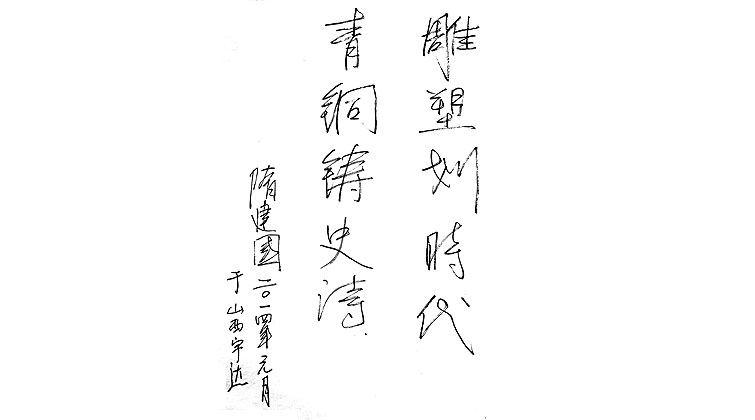 雕塑划時代
青銅铸史诗
隋建國二〇一四年元月
于山西宇达